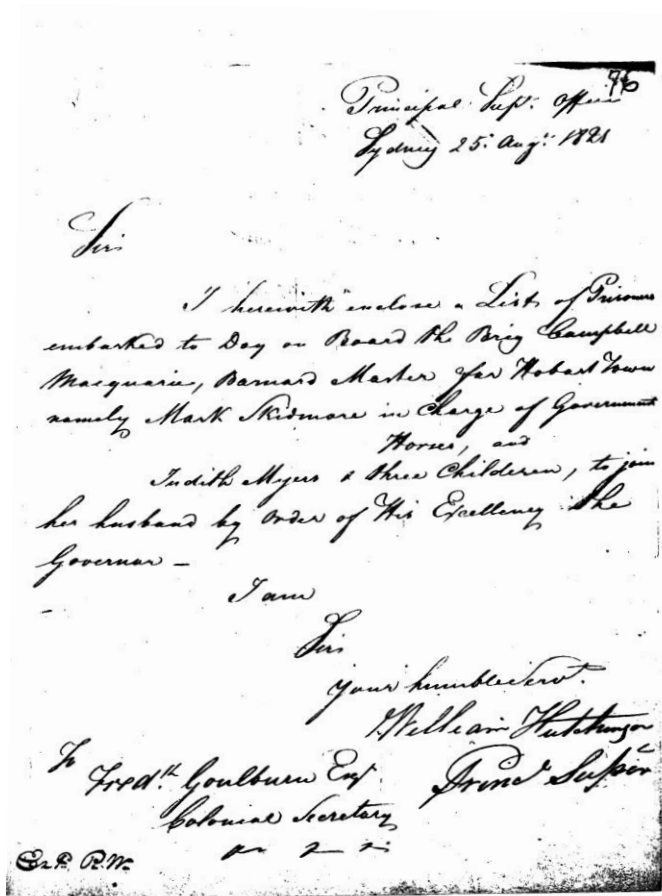 96
Principal Supt. Office
Sydney 25th Augt. 1821
Sir
I herewith enclose a List of Prisoners
embarked to Day on Board the Brig Campbell
Macquarie, Barnard Master for Hobart Town
namely Mark Skidmore in Charge of Government
Horses, and
Judith Myers & three Childeren, to join
her husband by order of His Excellency the
Governor —
I am
Sir
your humble Servt.
William Hutchinson
Princl. Suptr.
To
Fredk. Goulburn Esqr.
Colonial Secretary